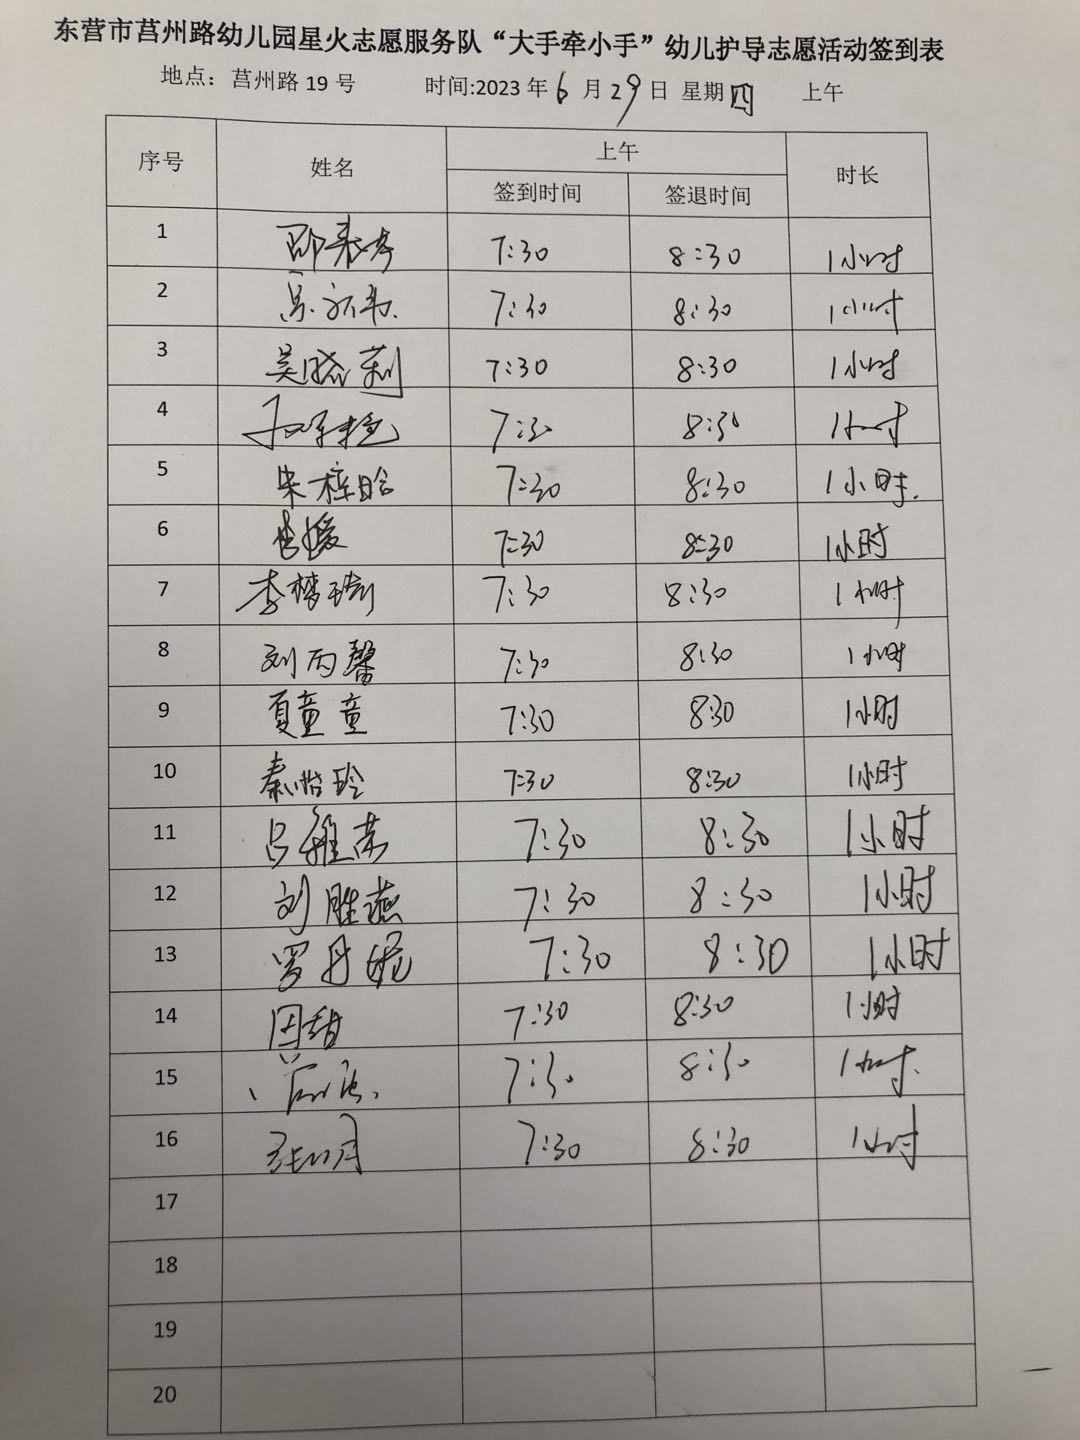 东营市莒州路幼儿园星火志愿服务队“大手牵小手”幼儿护导志愿活动签到表
地点：莒州路 19 号 时间:2023 年 6 月 29 日 星期 四 上午
序号 姓名 上午 时长
签到时间 签退时间
1 7:30 8:30 1小时
2 7:30 8:30 1小时
3 吴晓莉 7:30 8:30 1小时
4 7:30 8:30 1小时
5 朱梓晗 7:30 8:30 1小时.
6 7:30 8:30 1小时
7 李梦瑶 7:30 8:30 1小时
8 刘丙馨 7:30 8:30 1小时
9 夏童童 7:30 8:30 1小时
10 秦怡玲 7:30 8:30 1小时
11 吕雅荣 7:30 8:30 1小时
12 刘胜燕 7:30 8:30 1小时
13 罗丹妮 7:30 8:30 1小时
14 田甜 7:30 8:30 1小时
15 7:30 8:30 1小时.
16 7:30 8:30 1小时
17
18
19
20